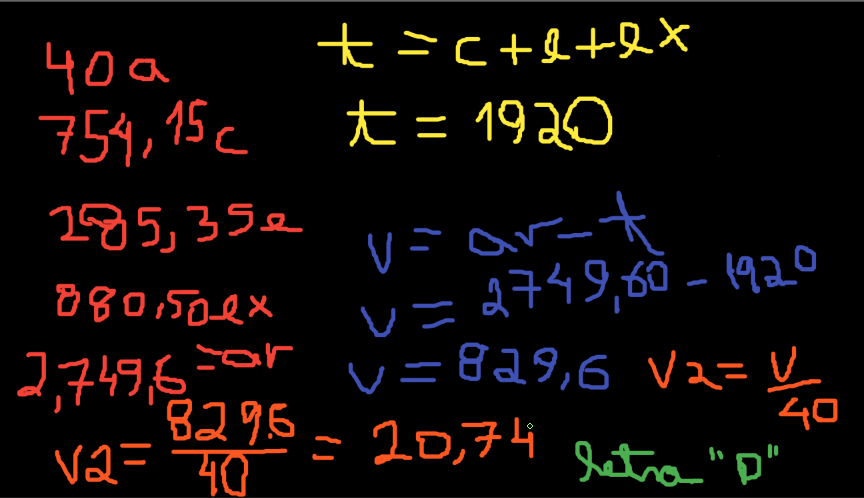 40 a
754,15 c
285,35 e
880,50 ex
2,749,6 = ar
t = c + e + ex
t = 1920
v = ar - t
v = 2749,60 - 1920
v = 829,6
v2 = v/40
v2 = 829.6/40 = 20,74
letra "D"